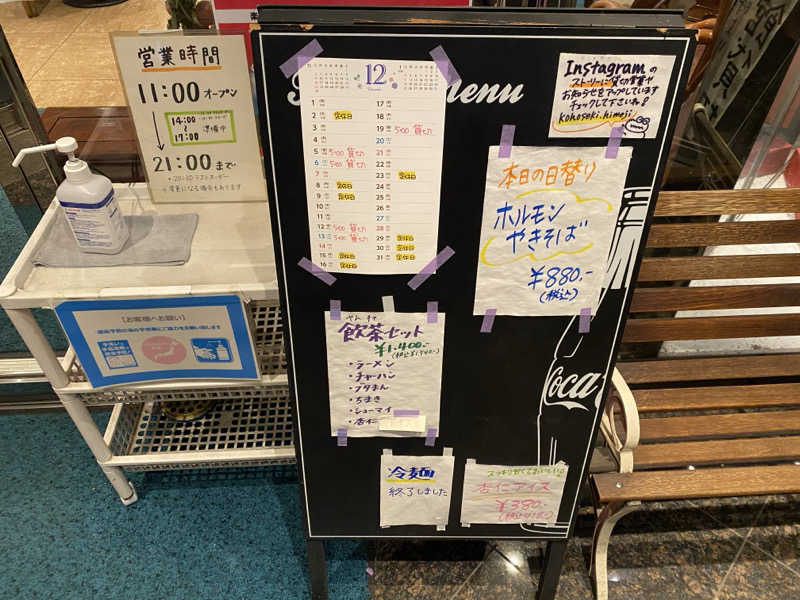 営業時間
11:00 オープン
14:00
17:00 準備中
21:00 まで
変更になる場合もあります
【お客様へお願い】
Menu
12
1
2 定休日
3
4
5 5:00 貸切
6 5:00 貸切
7
8 定休日
9 定休日
10
11
12 5:00 貸切
13 5:00 貸切
14
15 定休日
16 定休日
17
18
19 5:00 貸切
20
21
22
23 定休日
24
25
26
27
28
29 定休日
30 定休日
31 定休日
Instagramの
ストーリーに貸切営業や
お知らせをアップしています
チェックして下さいね!
本日の日替り
ホルモン
やきそば
¥880.-
(税込)
飲茶セット
¥1,400.-
・ラーメン
・チャーハン
・ブタまん
・ちまき
・シューマイ
・杏仁
冷麺
終了しました
杏仁アイス
¥380.-
Coca